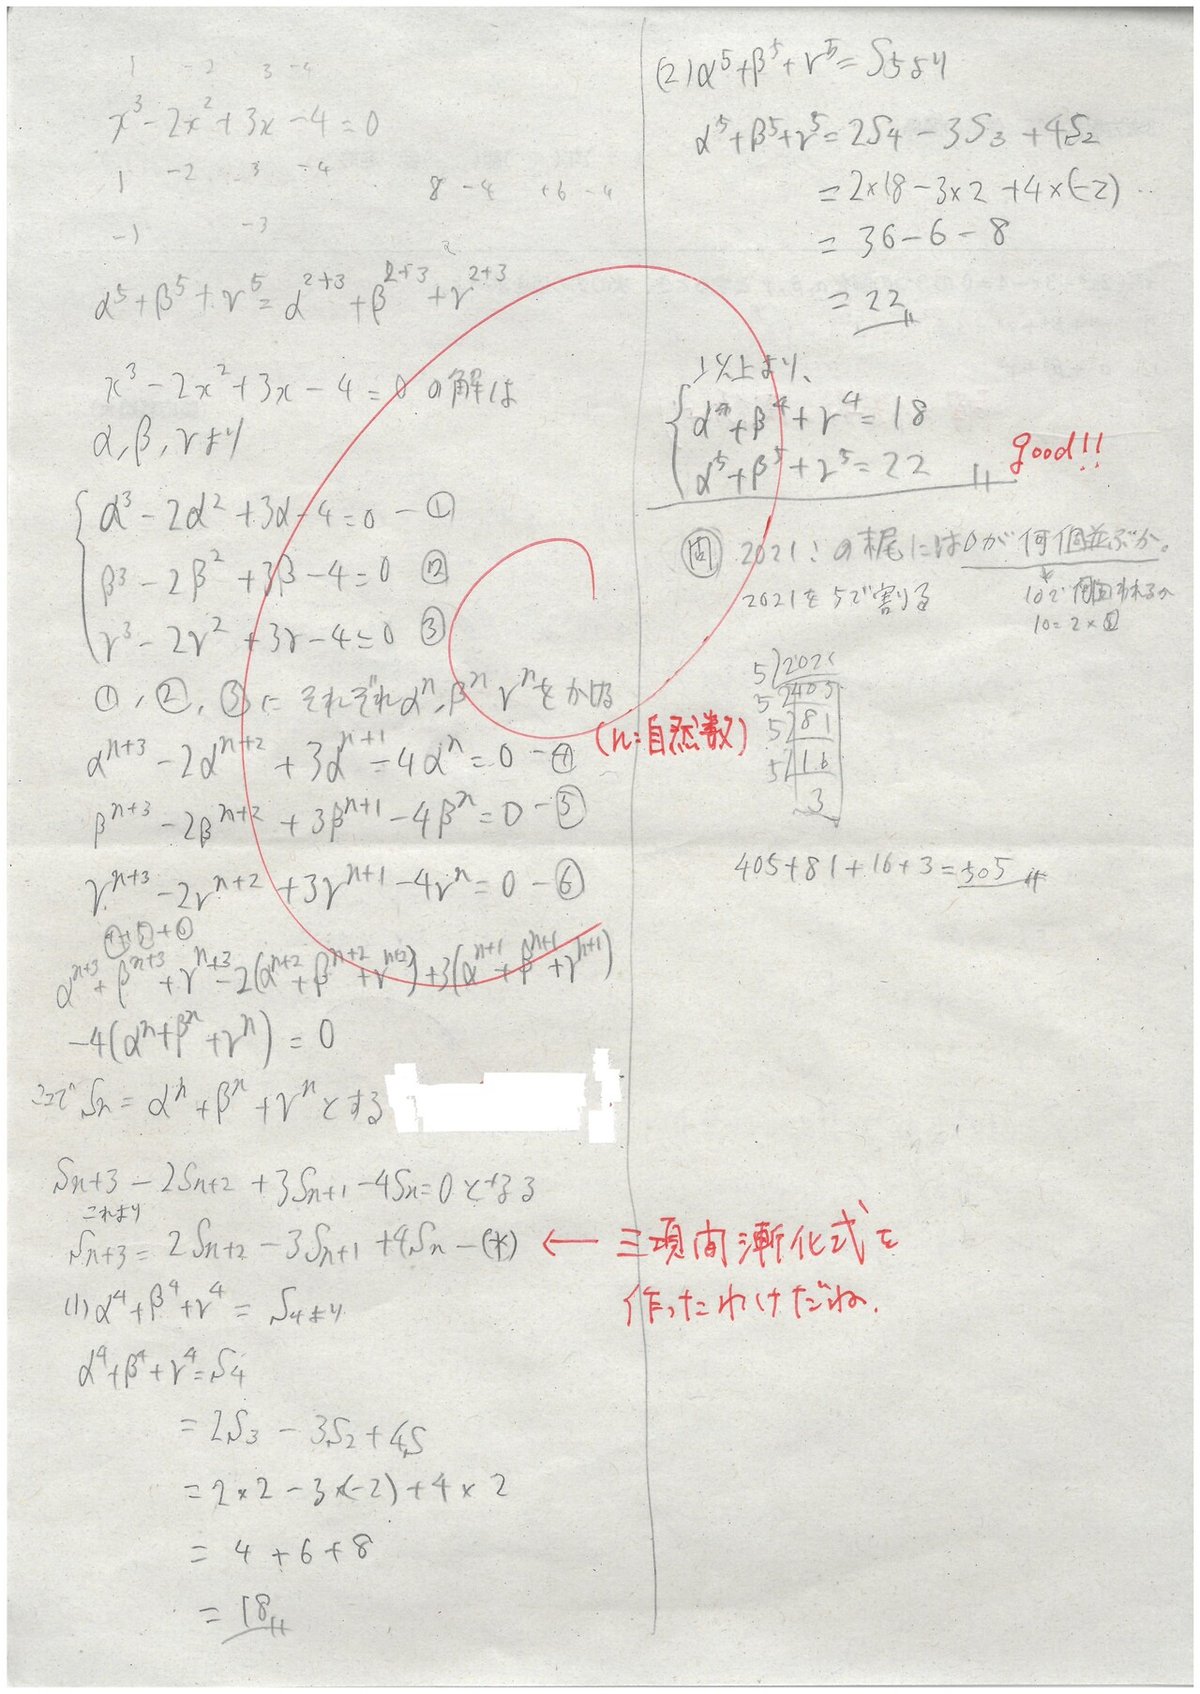 1 -2 3 -4
x³-2x²+3x-4=0
1 -2 3 -4
8 -4 +6 -4
-1 -3
α⁵+β⁵+γ⁵=α²⁺³+β²⁺³+γ²⁺³
x³-2x²+3x-4=0の解は
α,β,γより
α³-2α²+3α-4=0-①
β³-2β²+3β-4=0 ②
γ³-2γ²+3γ-4=0 ③
①,②,③にそれぞれαⁿ,βⁿ γⁿをかける
(n:自然数)
αⁿ⁺³-2αⁿ⁺²+3αⁿ⁺¹-4αⁿ=0-④
βⁿ⁺³-2βⁿ⁺²+3βⁿ⁺¹-4βⁿ=0-⑤
γⁿ⁺³-2γⁿ⁺²+3γⁿ⁺¹-4γⁿ=0-⑥
④+⑤+⑥
αⁿ⁺³+βⁿ⁺³+γⁿ⁺³-2(αⁿ⁺²+βⁿ⁺²+γⁿ⁺²)+3(αⁿ⁺¹+βⁿ⁺¹+γⁿ⁺¹)
-4(αⁿ+βⁿ+γⁿ)=0
ここで Sn=αⁿ+βⁿ+γⁿとする
Sn+3-2Sn+2+3Sn+1-4Sn=0となる
これより
Sn+3=2Sn+2-3Sn+1+4Sn-(*)
← 三項間漸化式を
作ったわけだね.
(1)α⁴+β⁴+γ⁴=S4より
α⁴+β⁴+γ⁴=S4
=2S3-3S2+4S
=2×2-3×(-2)+4×2
=4+6+8
=18
(2)α⁵+β⁵+γ⁵=S5より
α⁵+β⁵+γ⁵=2S4-3S3+4S2
=2×18-3×2+4×(-2)
=36-6-8
=22
以上より、
α⁴+β⁴+γ⁴=18
α⁵+β⁵+γ⁵=22
good!!
問 2021!の末尾には0が何個並ぶか。
10で何回われるか
10=2×5
2021を5で割る
5)2021
5)405
5)81
5)16
3
405+81+16+3=505